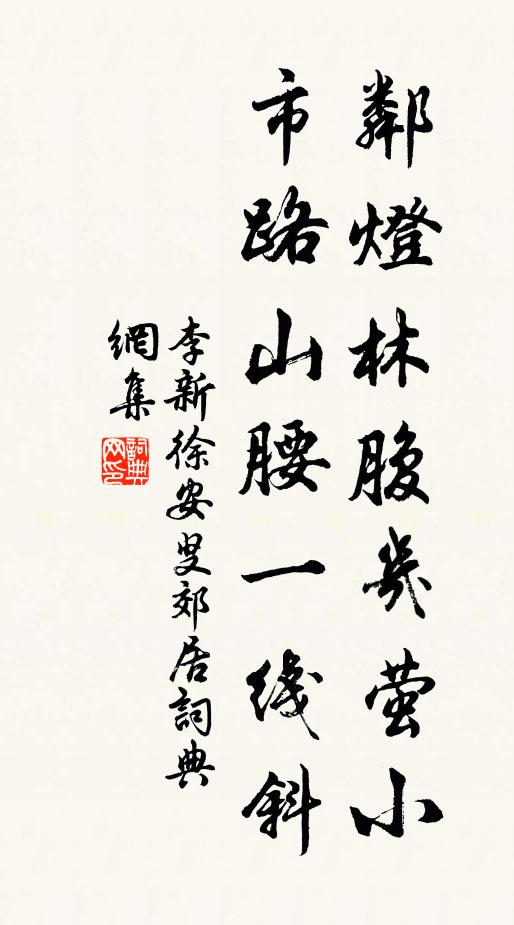 鄰燈林腹幾螢小
市路山腰一綫斜
李新徐安叟郊居詞典
網集
詞典
网印